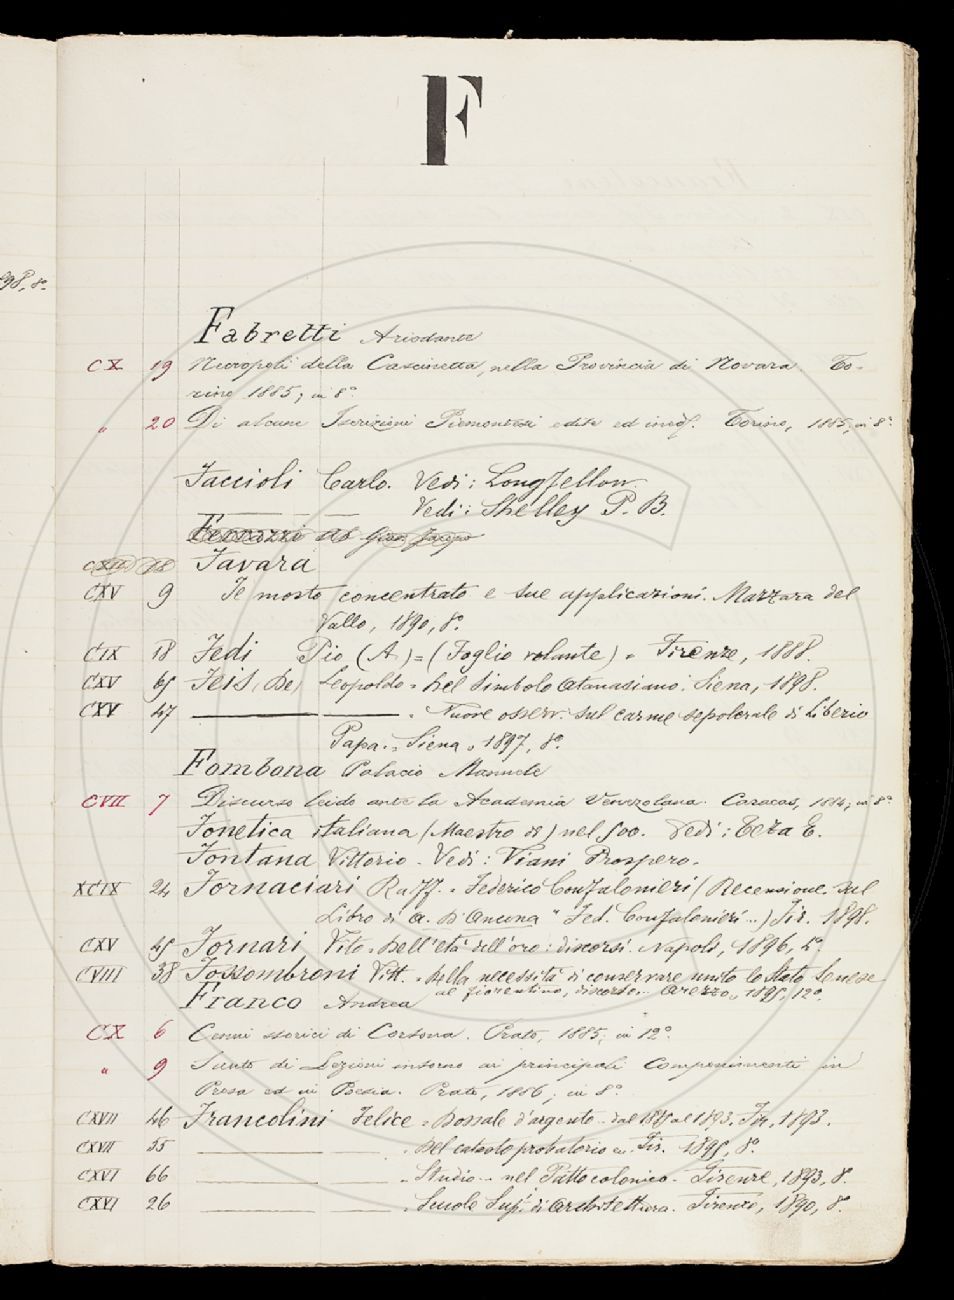 F
98, 8º
Fabretti Ariodante
CX 19 Necropoli della Cascinetta, nella Provincia di Novara. To-
rino 1885; in 8º
" 20 Di alcune Iscrizioni Piemontesi edite ed ined. Torino, 1885, in 8º
Faccioli Carlo. Vedi: Longfellow
Vedi: Shelley P. B.
Ferrazzi Ab Jacopo
CXII 18 Favara
CXV 9 Il mosto concentrato e sue applicazioni. Mazzara del
Vallo, 1890, 8º.
CIX 18 Fedi Pio (A) = (Foglio volante) - Firenze, 1888.
CXV 65 Feis (De) Leopoldo - Del Simbolo Atanasiano. Siena, 1898.
CXV 47 Nuove osserv. sul carme sepolcrale di Liberio
Papa. - Siena, 1897, 8º.
Fombona Palacio Manuele
CVII 7 Discurso leido ante la Academia Venezolana. Caracas, 1884; in 8º
Fonetica italiana (Maestro di) nel 500. Vedi: Teza E.
Fontana Vittorio - Vedi: Viani Prospero.
XCIX 24 Fornaciari Raff. - Federico Confalonieri (Recensione sul
Libro di A. D'Ancona "Fed. Confalonieri") Fir. 1898.
CXV 45 Fornari Vito - Dell'età dell'oro: discorsi. Napoli, 1896,
CVIII 38 Fossombroni Vitt. - Della necessità di conservare unito lo Stato Senese
al fiorentino, discorso... Arezzo, 12º.
Franco Andrea
CX 6 Cenni storici di Cortona. Prato, 1885; in 12º
" 9 Sunto di Lezioni intorno ai principali Componimenti in
Prosa ed in Poesia. Prato, 1886; in 8º
CXVII 46 Francolini Felice - Dossale d'argento dal al 1893. Fir, 1893.
CXVII 55 Del catasto probatorio Fir. 8º.
CXVI 66 - Studio nel Patto colonico - Firenze, 1893, 8.
CXVI 26 - Scuole Sup. di Architettura. Firenze, 1890, 8º.